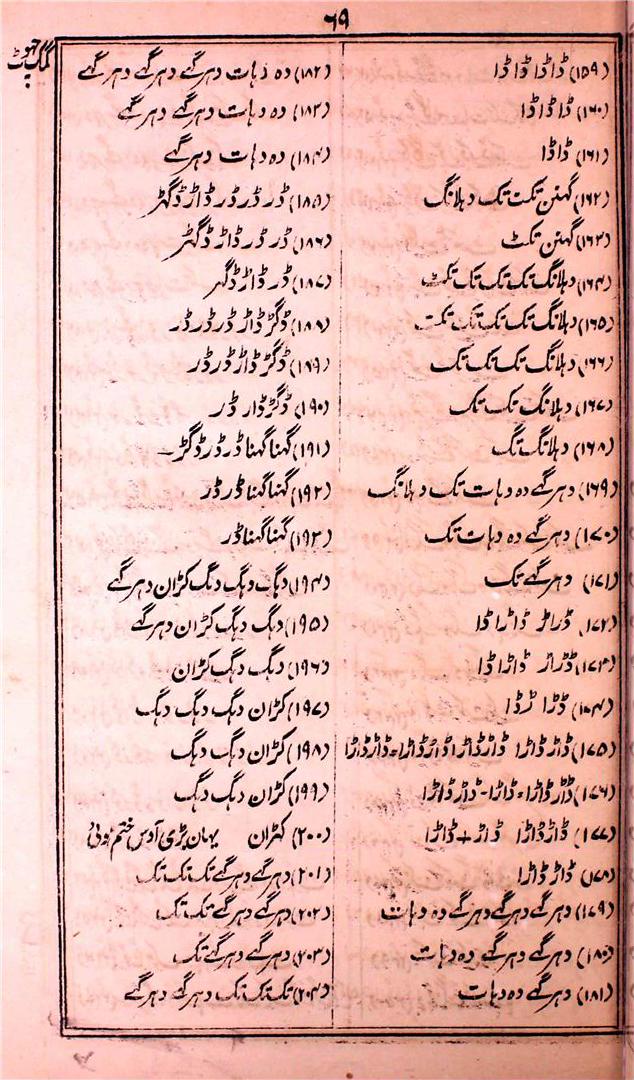 ٦٩
(۱۵۹) ڈاڈا ڈاڈا
(۱۶۰) ڈا ڈاڈا
(۱۶۱) ڈاڈا
(۱۶۲) گہنن تکت تک دہلانگ
(۱۶۳) گہنن تکٹ
(۱۶۴) دہلانگ تک تک تاک تکٹ
(۱۶۵) دہلانگ تک تک تک تکت
(۱۶۶) دہلانگ تک تک تک
(۱۶۷) دہلانگ تک تک
(۱۶۸) دہلانگ تگ
(۱۶۹) دہرگے دہ دہات تک دہلانگ
(۱۷۰) دہرگے دہ دہات تک
(۱۷۱) دہرگے تک
(۱۷۲) ڈراڑ ڈاڑاڈا
(۱۷۳) ڈڑراڑ ڈاڑاڈا
(۱۷۴) ڈڑا ڑڈا
(۱۷۵) ڈاڑڈاڑا ڈاڑڈاڑاڈاڑڈاڑا=ڈاڑڈاڑا
(۱۷۶) ڈاڑڈاڑا=ڈاڑا-ڈاڑڈاڑا
(۱۷۷) ڈاڑڈاڑا ڈاڑ+ڈاڑا
(۱۷۸) ڈاڑڈاڑا
(۱۷۹) دہرگے دہرگے دہرگے دہ دہات
(۱۸۰) دہرگے دہرگے دہ دہات
(۱۸۱) دہرگے دہ دہات
(۱۸۲) دہ دہات دہرگے دہرگے دہرگے
(۱۸۳) دہ دہات دہرگے دہرگے
(۱۸۴) دہ دہات دہرگے
(۱۸۵) ڈر ڈر ڈر ڈاڑ ڈگہڑ
(۱۸۶) ڈر ڈر ڈاڑ ڈگہڑ
(۱۸۷) ڈر ڈاڑ ڈگہڑ
(۱۸۸) ڈگڑ ڈاڑ ڈر ڈر ڈر
(۱۸۹) ڈگڑ ڈاڑ ڈر ڈر
(۱۹۰) ڈگڑ ڈار ڈر
(۱۹۱) گہنا گہنا ڈر ڈر ڈگڑ
(۱۹۲) گہنا گہنا ڈر ڈر
(۱۹۳) گہنا گہنا ڈر
(۱۹۴) دہگ دہگ دہگ کڑان دہرگے
(۱۹۵) دہگ دہگ کڑان دہرگے
(۱۹۶) دہگ دہگ کڑان
(۱۹۷) کڑان دہگ دہگ دہگ
(۱۹۸) کڑان دہگ دہگ
(۱۹۹) کڑان دہگ دہگ
(۲۰۰) کہڑان یہان بڑی آوس ختم ہوئی
(۲۰۱) دہرگے دہرگے تک تک تک
(۲۰۲) دہرگے دہرگے تک تک
(۲۰۳) دہرگے دہرگے تک
(۲۰۴) تک تک تک دہرگے دہرگے